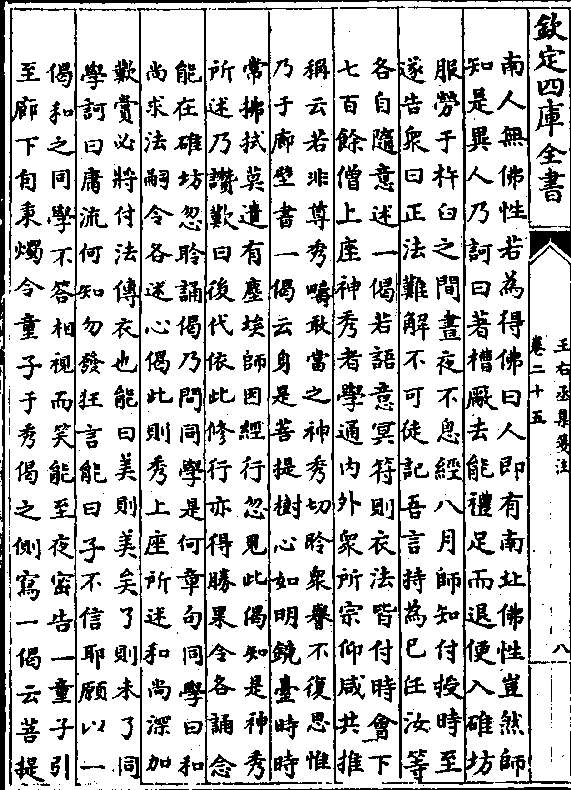 欽定四庫全書
王右丞集箋注
卷二十五
八
南人無佛性若為得佛曰人即有南北佛性豈然師
知是異人乃訶曰著槽厰去能禮足而退便入碓坊
服勞于杵臼之間晝夜不息經八月師知付授時至
遂告衆曰正法難解不可徒記吾言持為已任汝等
各自隨意述一偈若語意冥符則衣法皆付時會下
七百餘僧上座神秀者學通内外衆所宗仰咸共推
稱云若非尊秀疇敢當之神秀切聆衆譽不復思惟
乃于廊壁書一偈云身是菩提樹心如明鏡臺時時
常拂拭莫遣有塵埃師因經行忽見此偈知是神秀
所述乃讚歎曰後代依此修行亦得勝果令各誦念
能在碓坊忽聆誦偈乃問同學是何章句同學曰和
尚求法嗣令各述心偈此則秀上座所述和尚深加
歎賞必將付法傳衣也能曰美則美矣了則未了同
學訶曰庸流何知勿發狂言能曰子不信耶願以一
偈和之同學不答相視而笑能至夜密告一童子引
至廊下自秉燭令童子于秀偈之側寫一偈云菩提